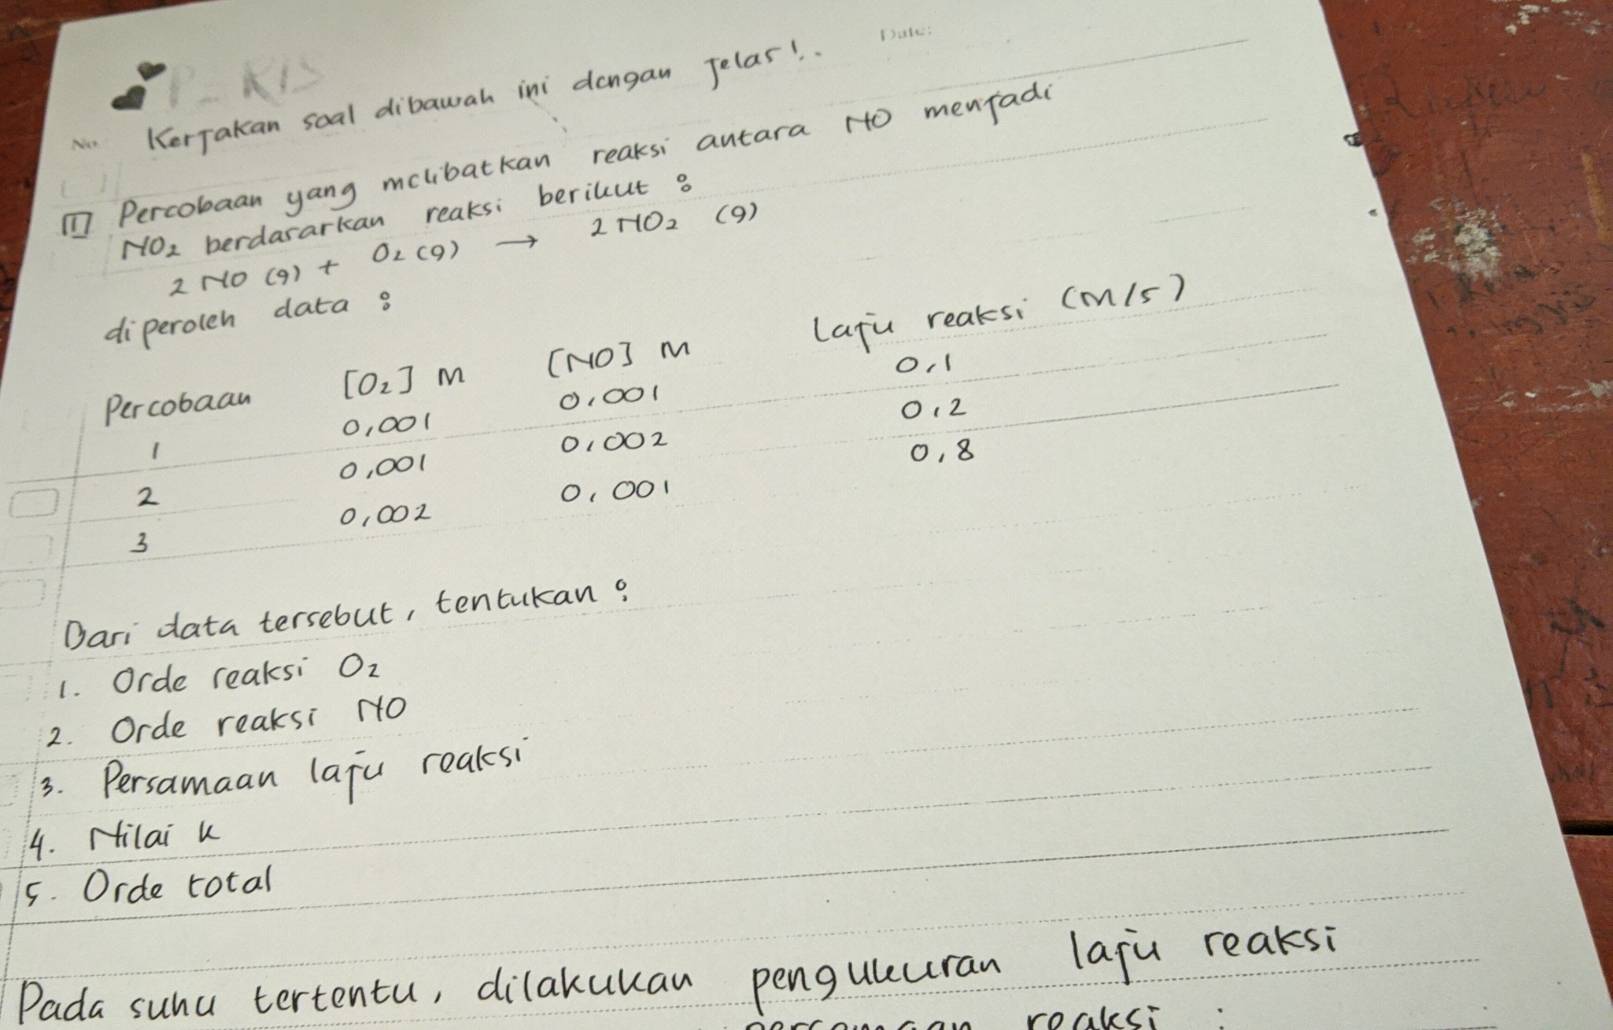 Date:
No.
Kerjakan soal dibawah ini dengan jelas!.
1 Percobaan yang melibatkan reaksi antara NO menjadi
NO₂ berdasarkan reaksi berikut :
2 NO (g) + O₂ (g) → 2 NO₂ (g)
diperoleh data :
Percobaan [O₂] M [NO] M laju reaksi (M/s)
1 0,001 0,001 0,1
2 0,001 0,002 0,2
3 0,002 0,001 0,8
Dari data tersebut, tentukan :
1. Orde reaksi O₂
2. Orde reaksi NO
3. Persamaan laju reaksi
4. Nilai k
5. Orde total
Pada suhu tertentu, dilakukan pengukuran laju reaksi
reaksi :